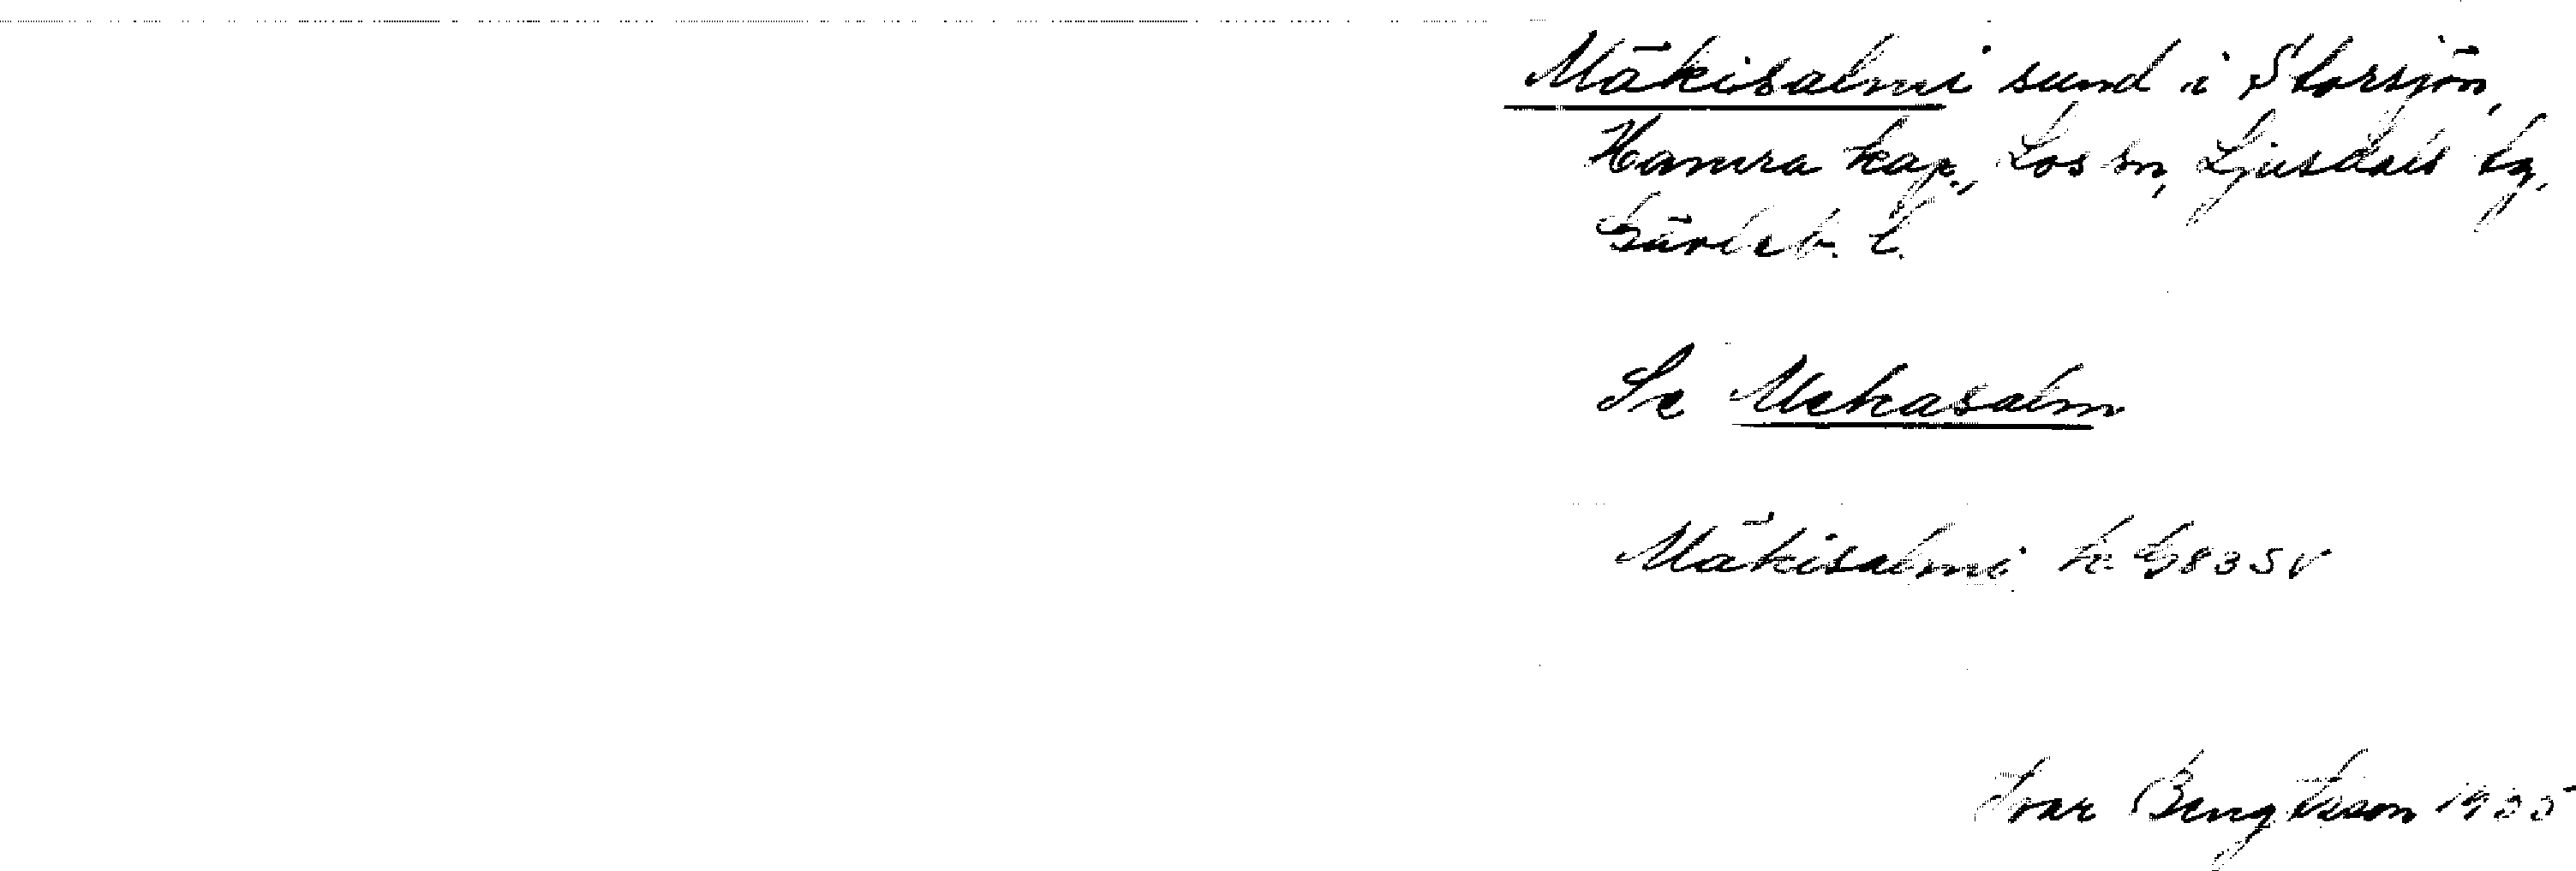 Mäkisalmi sund i Storsjön,
Hamra kap., Los sn, Ljusdals tg,
Gävleb. l.
Se Mekasalm
Mäkisalmi k. G83SV
Ivar Bengtsson 1935